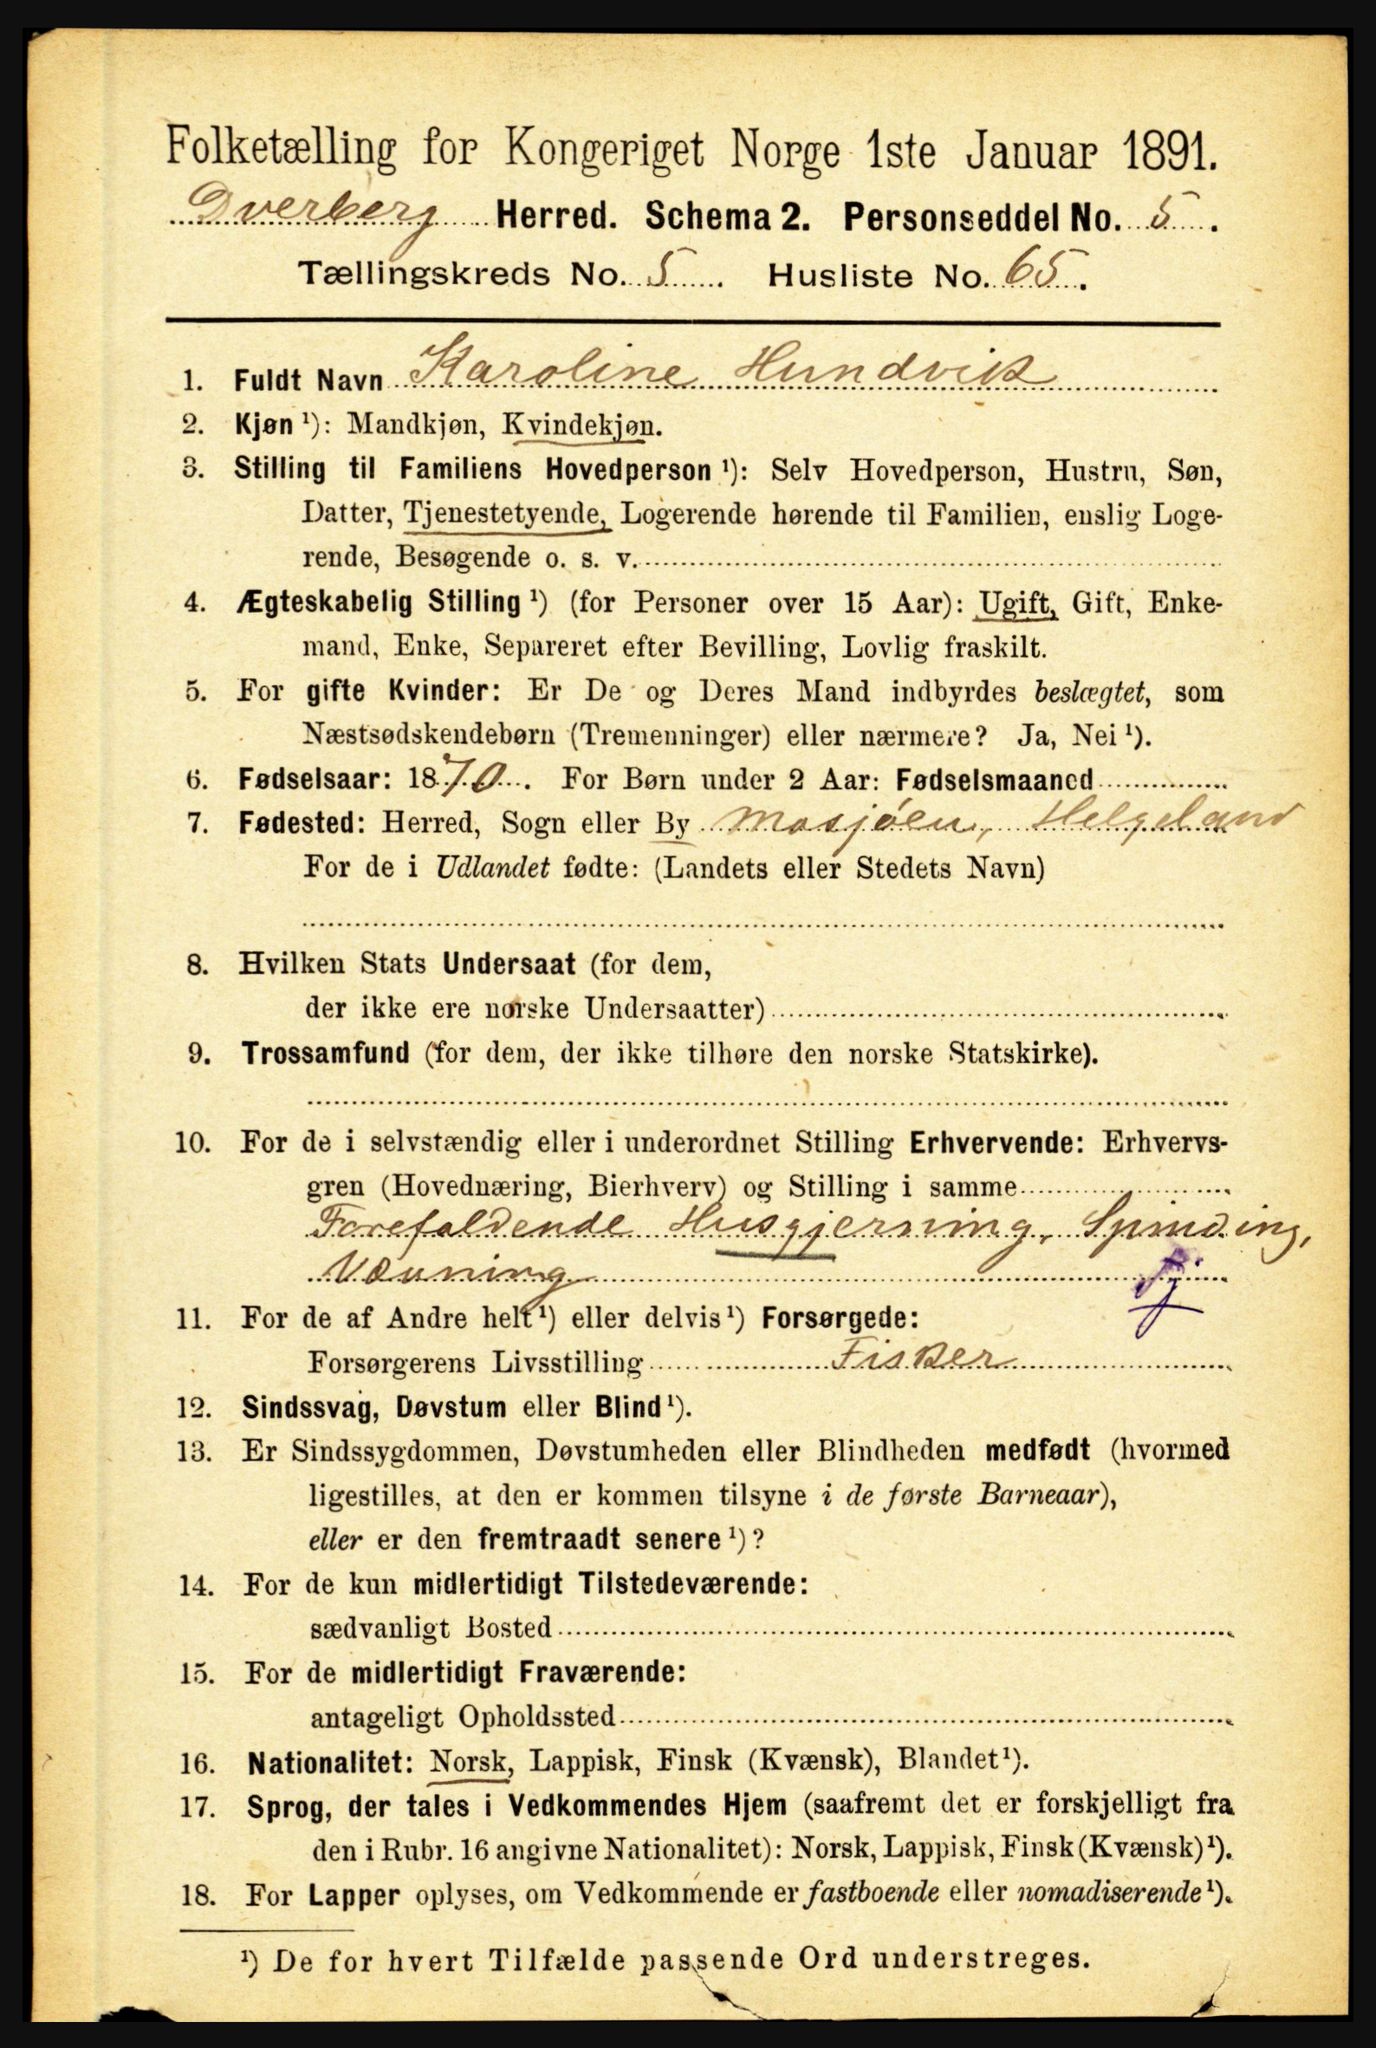 Folketælling for Kongeriget Norge 1ste Januar 1891.
Dverberg Herred. Schema 2. Personseddel No. 5.
Tællingskreds No. 5. Husliste No. 65.
1. Fuldt Navn Karoline Hundvik
2. Kjøn ¹): Mandkjøn, Kvindekjøn.
3. Stilling til Familiens Hovedperson ¹): Selv Hovedperson, Hustru, Søn,
Datter, Tjenestetyende, Logerende hørende til Familien, enslig Loge-
rende, Besøgende o. s. v.
4. Ægteskabelig Stilling ¹) (for Personer over 15 Aar): Ugift, Gift, Enke-
mand, Enke, Separeret efter Bevilling, Lovlig fraskilt.
5. For gifte Kvinder: Er De og Deres Mand indbyrdes beslægtet, som
Næstsødskendebørn (Tremenninger) eller nærmere? Ja, Nei ¹).
6. Fødselsaar: 1870. For Børn under 2 Aar: Fødselsmaaned
7. Fødested: Herred, Sogn eller By Mosjøen, Helgeland
For de i Udlandet fødte: (Landets eller Stedets Navn)
8. Hvilken Stats Undersaat (for dem,
der ikke ere norske Undersaatter)
9. Trossamfund (for dem, der ikke tilhøre den norske Statskirke).
10. For de i selvstændig eller i underordnet Stilling Erhvervende: Erhvervs-
gren (Hovednæring, Bierhverv) og Stilling i samme
Forefaldende Husgjerning, Spinding,
Vævning tj
11. For de af Andre helt ¹) eller delvis ¹) Forsørgede:
Forsørgerens Livsstilling Fisker
12. Sindssvag, Døvstum eller Blind ¹).
13. Er Sindssygdommen, Døvstumheden eller Blindheden medfødt (hvormed
ligestilles, at den er kommen tilsyne i de første Barneaar),
eller er den fremtraadt senere ¹)?
14. For de kun midlertidigt Tilstedeværende:
sædvanligt Bosted
15. For de midlertidigt Fraværende:
antageligt Opholdssted
16. Nationalitet: Norsk, Lappisk, Finsk (Kvænsk), Blandet ¹).
17. Sprog, der tales i Vedkommendes Hjem (saafremt det er forskjelligt fra
den i Rubr. 16 angivne Nationalitet): Norsk, Lappisk, Finsk (Kvænsk) ¹).
18. For Lapper oplyses, om Vedkommende er fastboende eller nomadiserende ¹).
¹) De for hvert Tilfælde passende Ord understreges.